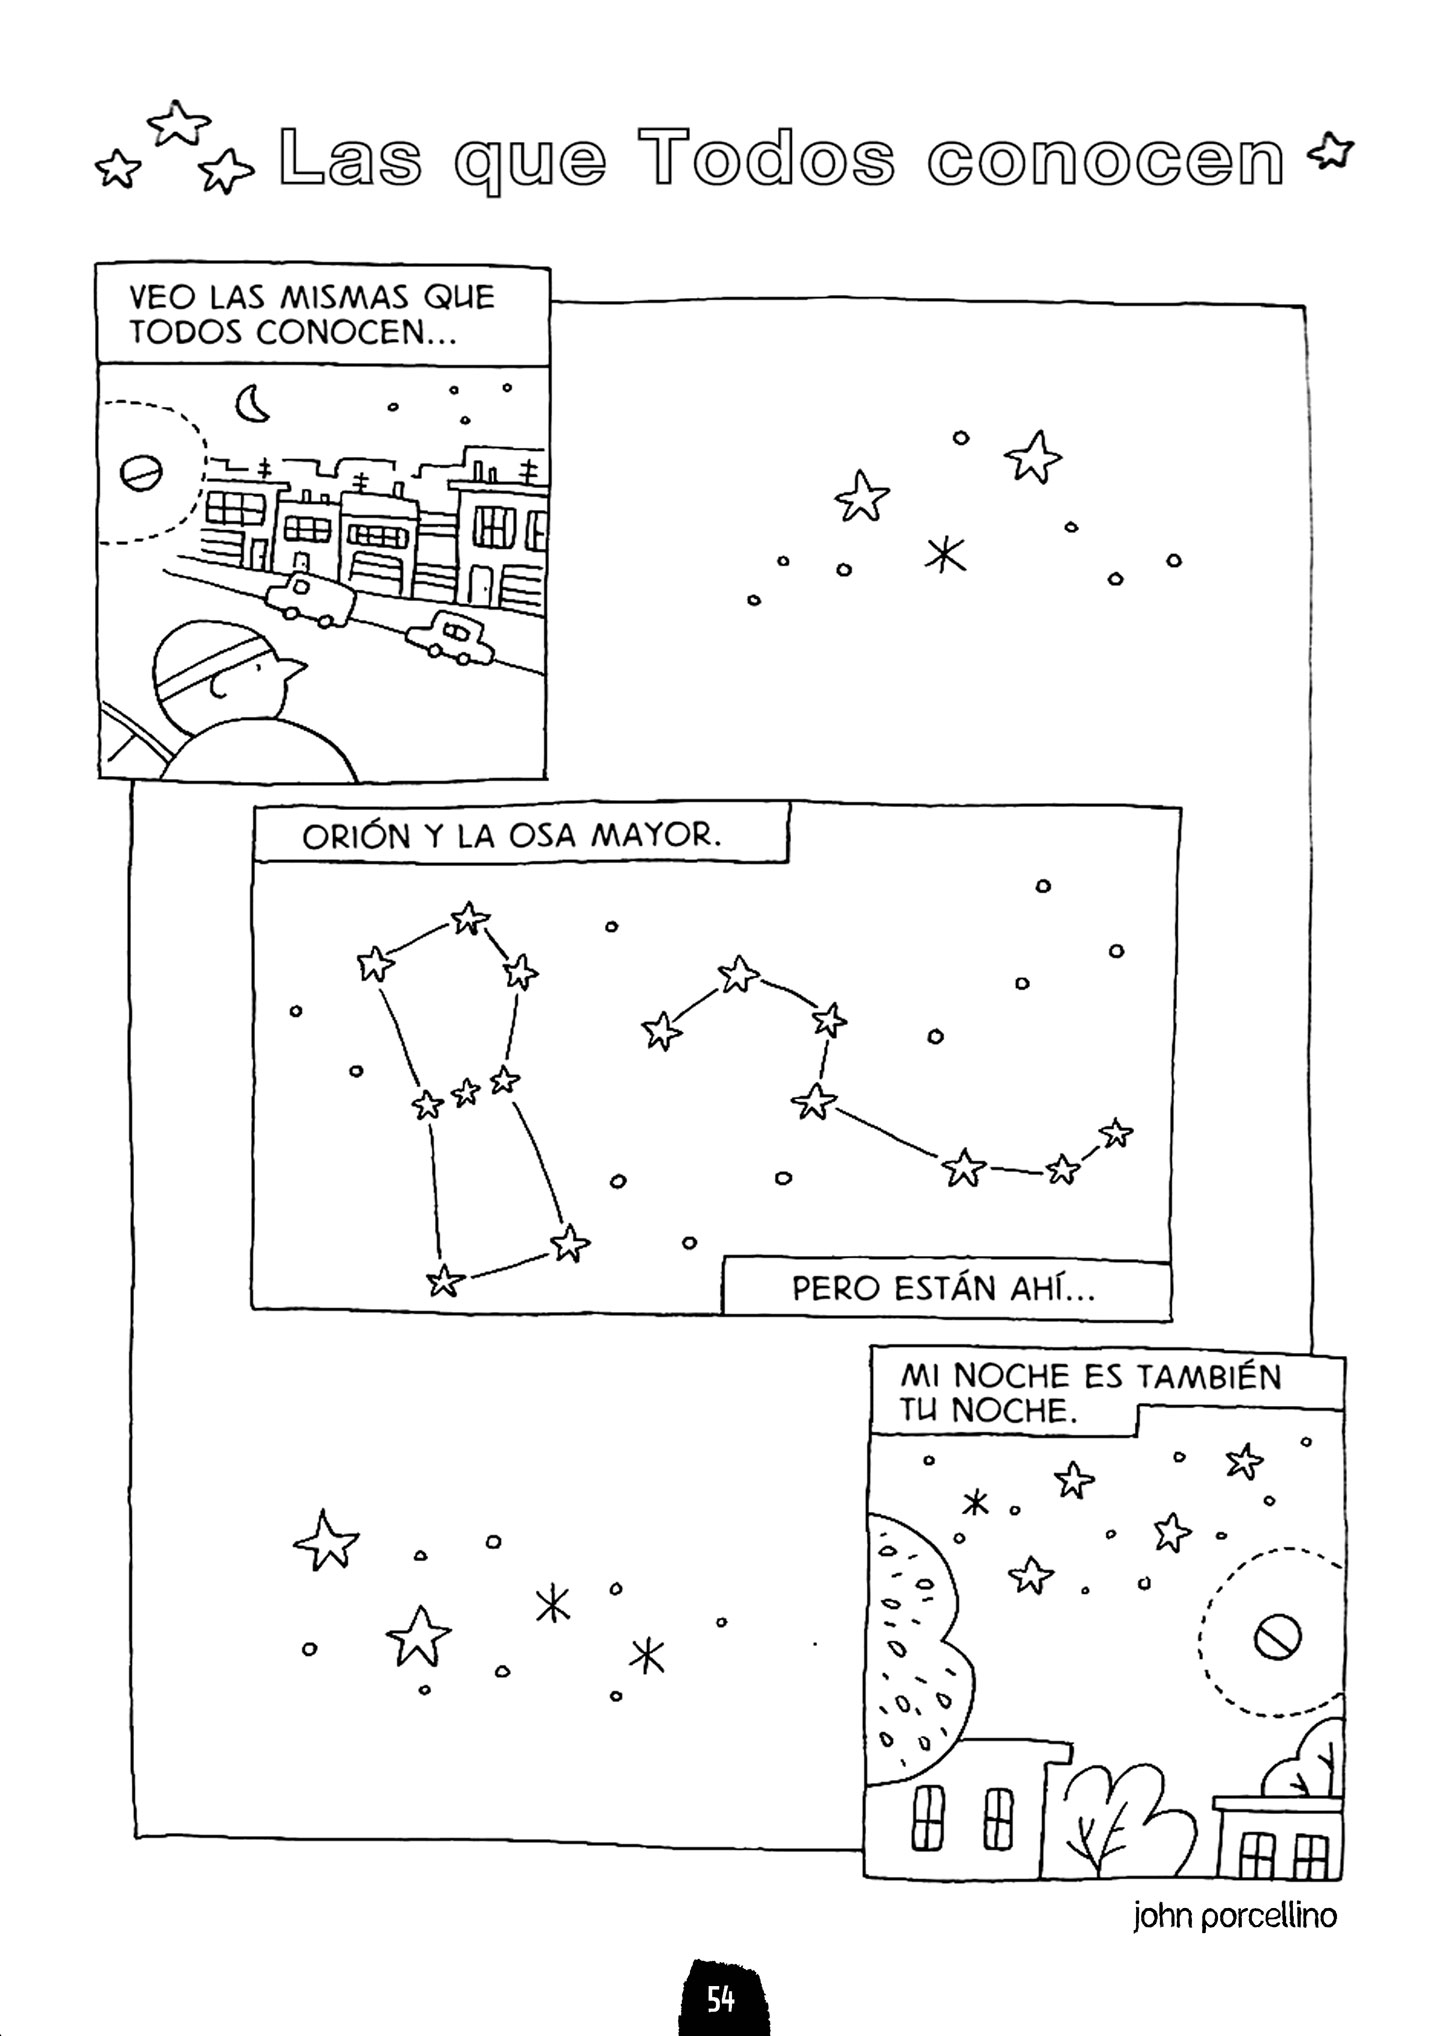 Las que Todos conocen
VEO LAS MISMAS QUE
TODOS CONOCEN...
ORIÓN Y LA OSA MAYOR.
PERO ESTÁN AHÍ...
MI NOCHE ES TAMBIÉN
TU NOCHE.
john porcellino
54